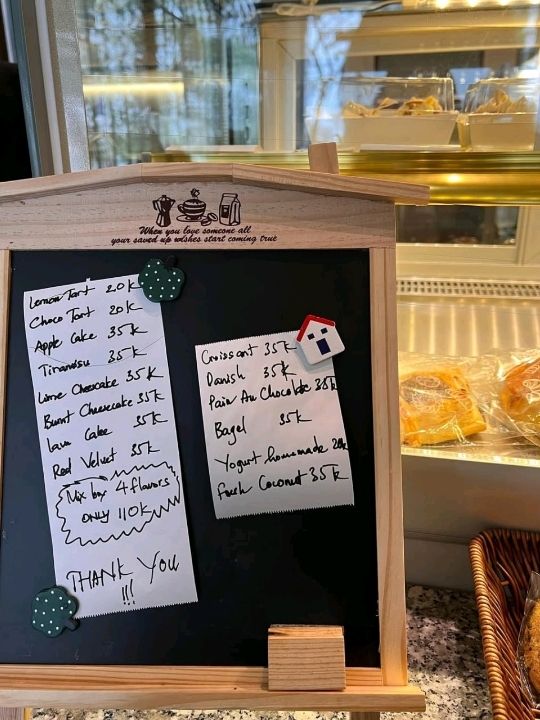 When you love someone all
your saved up wishes start coming true
Lemon Tart 20K
Choco Tart 20K
Apple Cake 35K
Tiramisu 35K
Lime Cheesecake 35K
Burnt Cheesecake 35K
Lava Cake 35K
Red Velvet 35K
Mix box 4 flavors
ONLY 110K
THANK YOU
!!!
Croissant 35K
Danish 35K
Pain Au Chocolate 35K
Bagel 35K
Yogurt homemade 20k
Fresh Coconut 35K